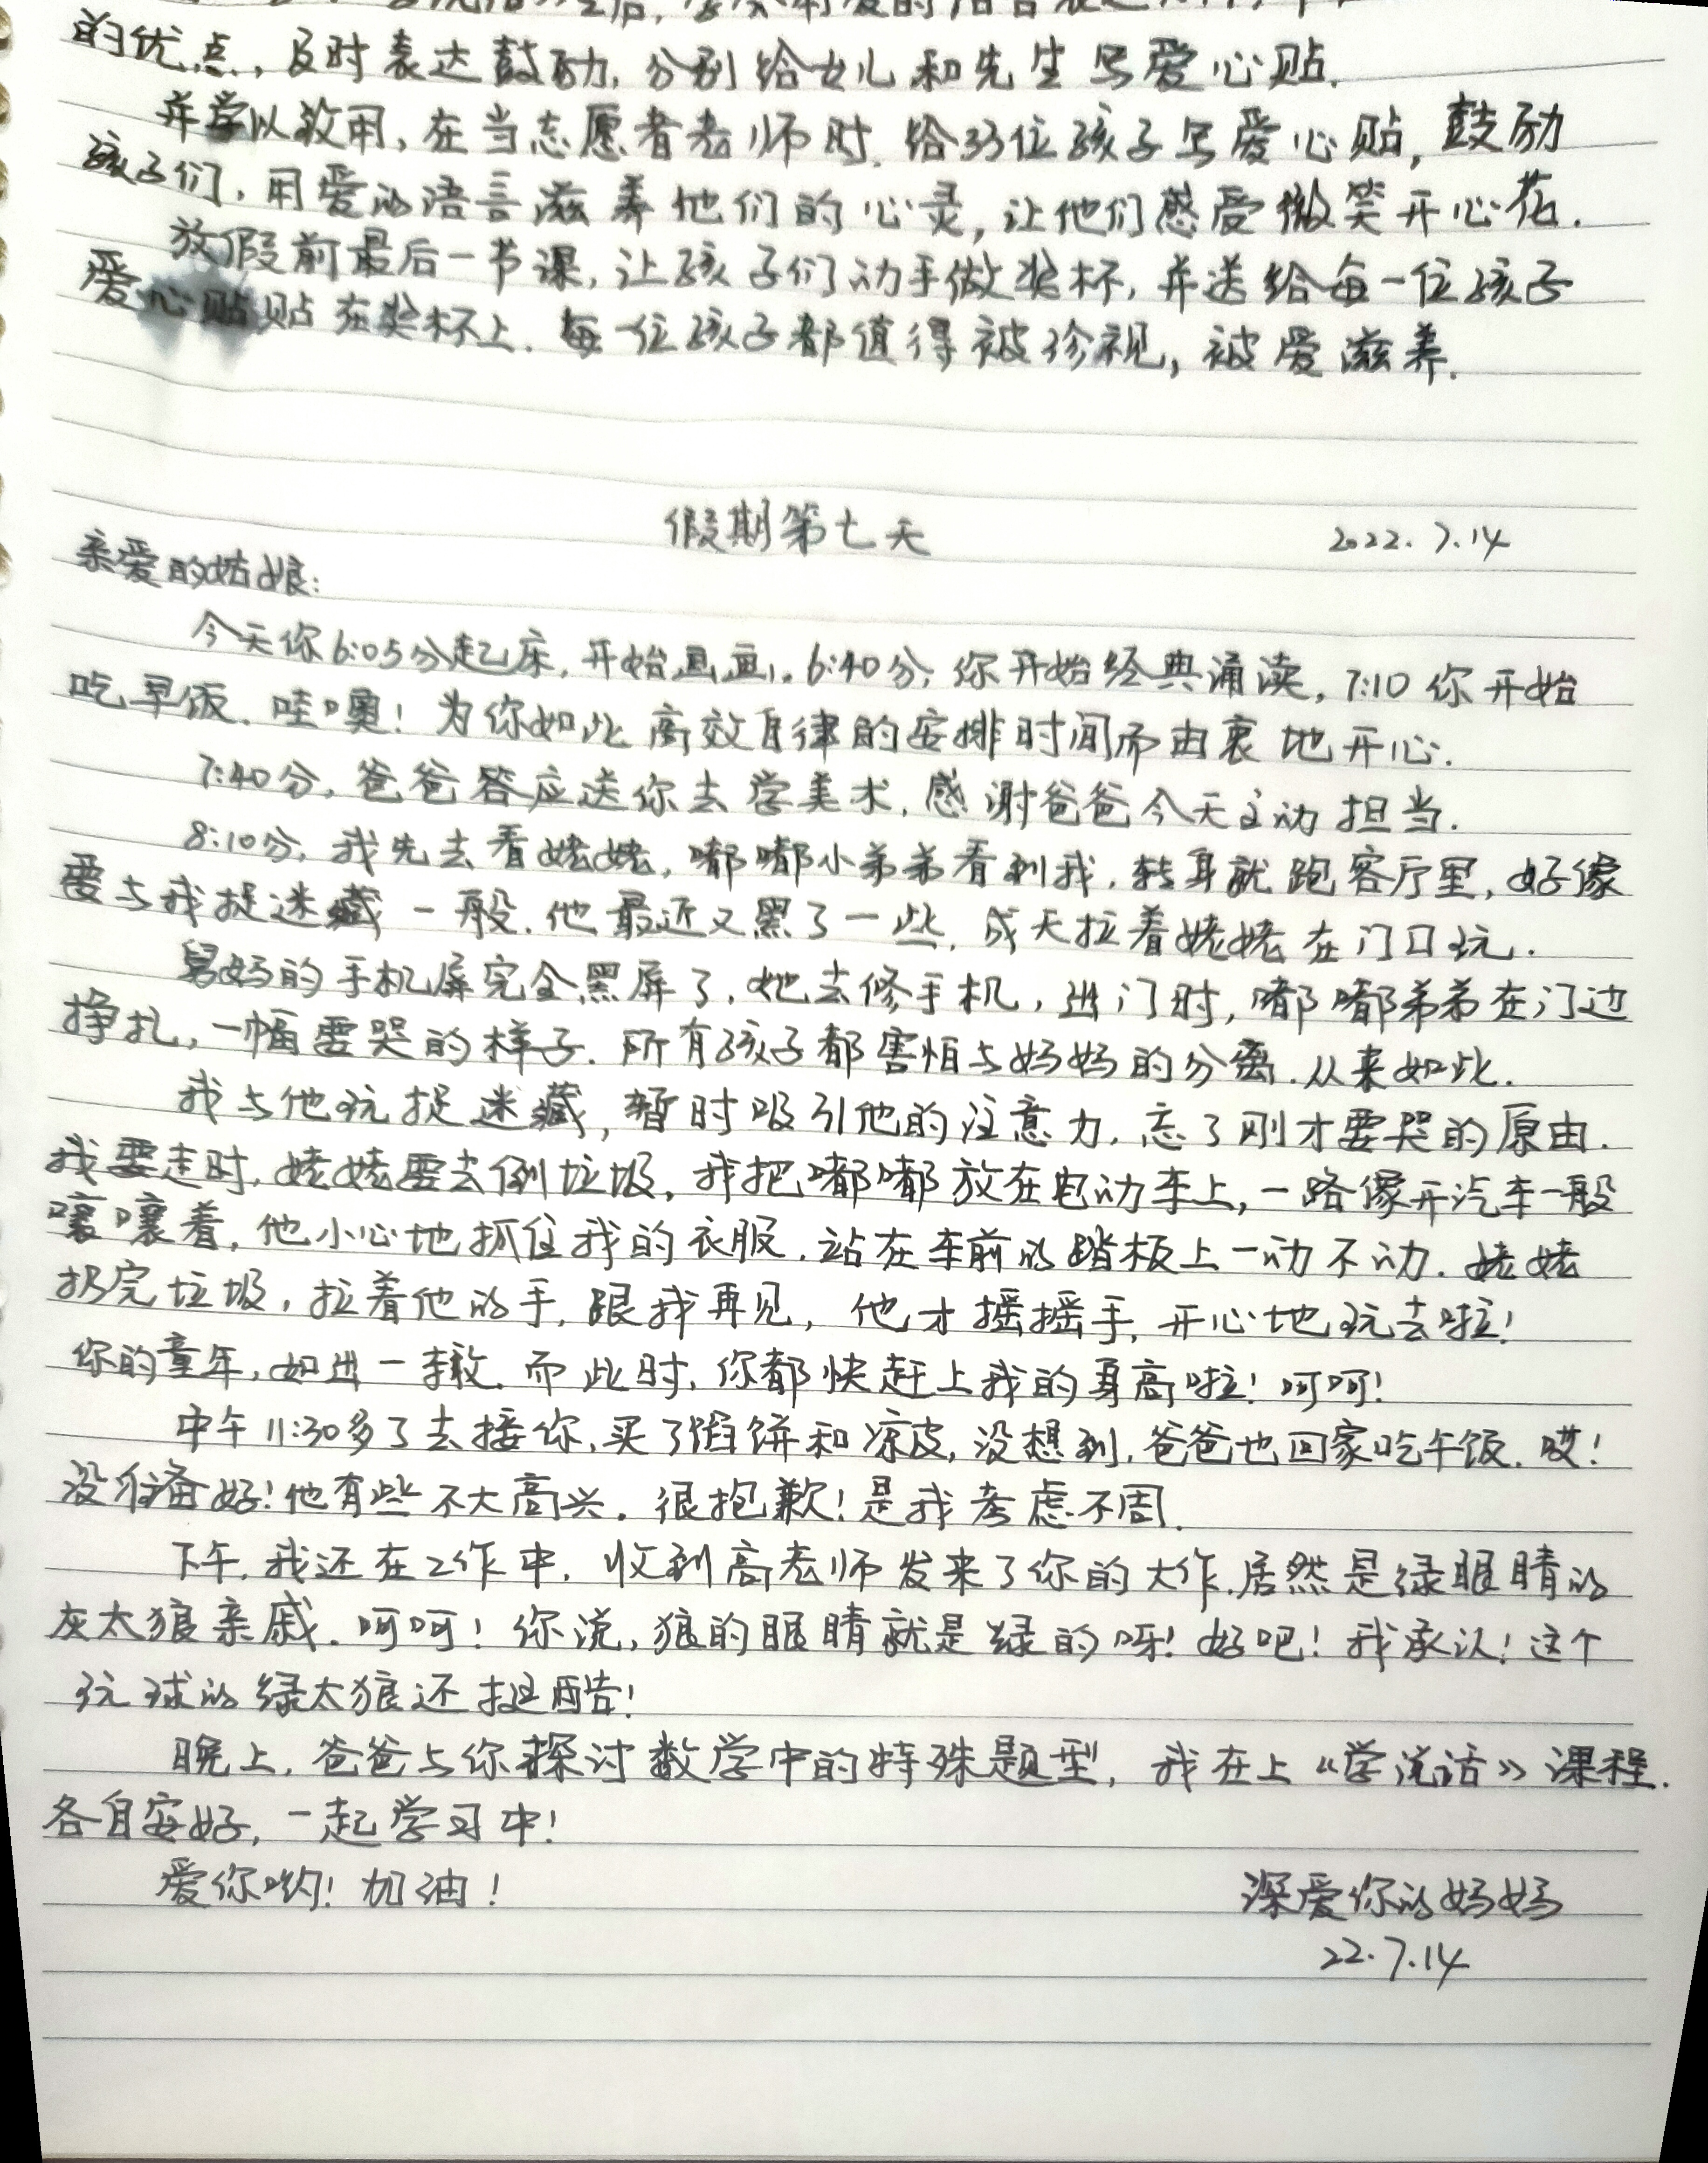 的优点，及时表达鼓励，分别给女儿和先生写爱心贴.
并学以致用，在当志愿者老师时，给33位孩子写爱心贴，鼓励
孩子们，用爱的语言滋养他们的心灵，让他们感受微笑开心花.
放假前最后一节课，让孩子们动手做奖杯，并送给每一位孩子
爱心贴贴在奖杯上. 每一位孩子都值得被珍视，被爱滋养.
假期第七天 2022.7.14
亲爱的姑娘：
今天你6:05分起床，开始画画，6:40分，你开始经典诵读，7:10你开始
吃早饭. 哇噢！为你如此高效自律的安排时间而由衷地开心.
7:40分，爸爸答应送你去学美术，感谢爸爸今天主动担当.
8:10分，我先去看姥姥，嘟嘟小弟弟看到我，转身就跑客厅里，好像
要与我捉迷藏一般. 他最近又黑了一些，成天拉着姥姥在门口玩.
舅妈的手机屏完全黑屏了，她去修手机，进门时，嘟嘟弟弟在门边
挣扎，一幅要哭的样子. 所有孩子都害怕与妈妈的分离.从来如此.
我与他玩捉迷藏，暂时吸引他的注意力，忘了刚才要哭的原由.
我要走时，姥姥要去倒垃圾，我把嘟嘟放在电动车上，一路像开汽车一般
嚷嚷着，他小心地抓住我的衣服，站在车前的踏板上一动不动. 姥姥
扔完垃圾，拉着他的手，跟我再见，他才摇摇手，开心地玩去啦！
你的童年，如进一辙. 而此时，你都快赶上我的身高啦！呵呵！
中午11:30多了去接你，买了馅饼和凉皮，没想到，爸爸也回家吃午饭. 哎！
没准备好！他有些不大高兴. 很抱歉！是我考虑不周.
下午，我还在工作中，收到高老师发来了你的大作.居然是绿眼睛的
灰太狼亲戚. 呵呵！你说，狼的眼睛就是绿的呀！好吧！我承认！这个
玩球的绿太狼还挺酷！
晚上，爸爸与你探讨数学中的特殊题型，我在上《学说话》课程.
各自安好，一起学习中！
爱你哟！加油！ 深爱你的妈妈
22.7.14